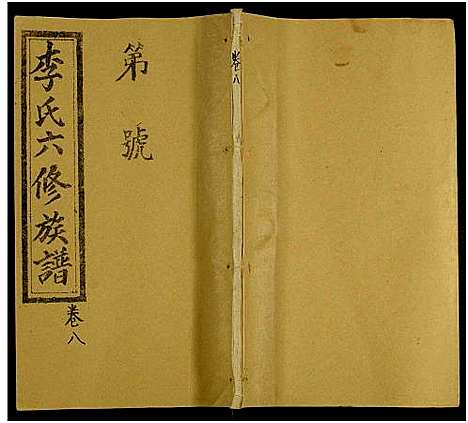 李氏六修族譜
卷八
第 號
卷八